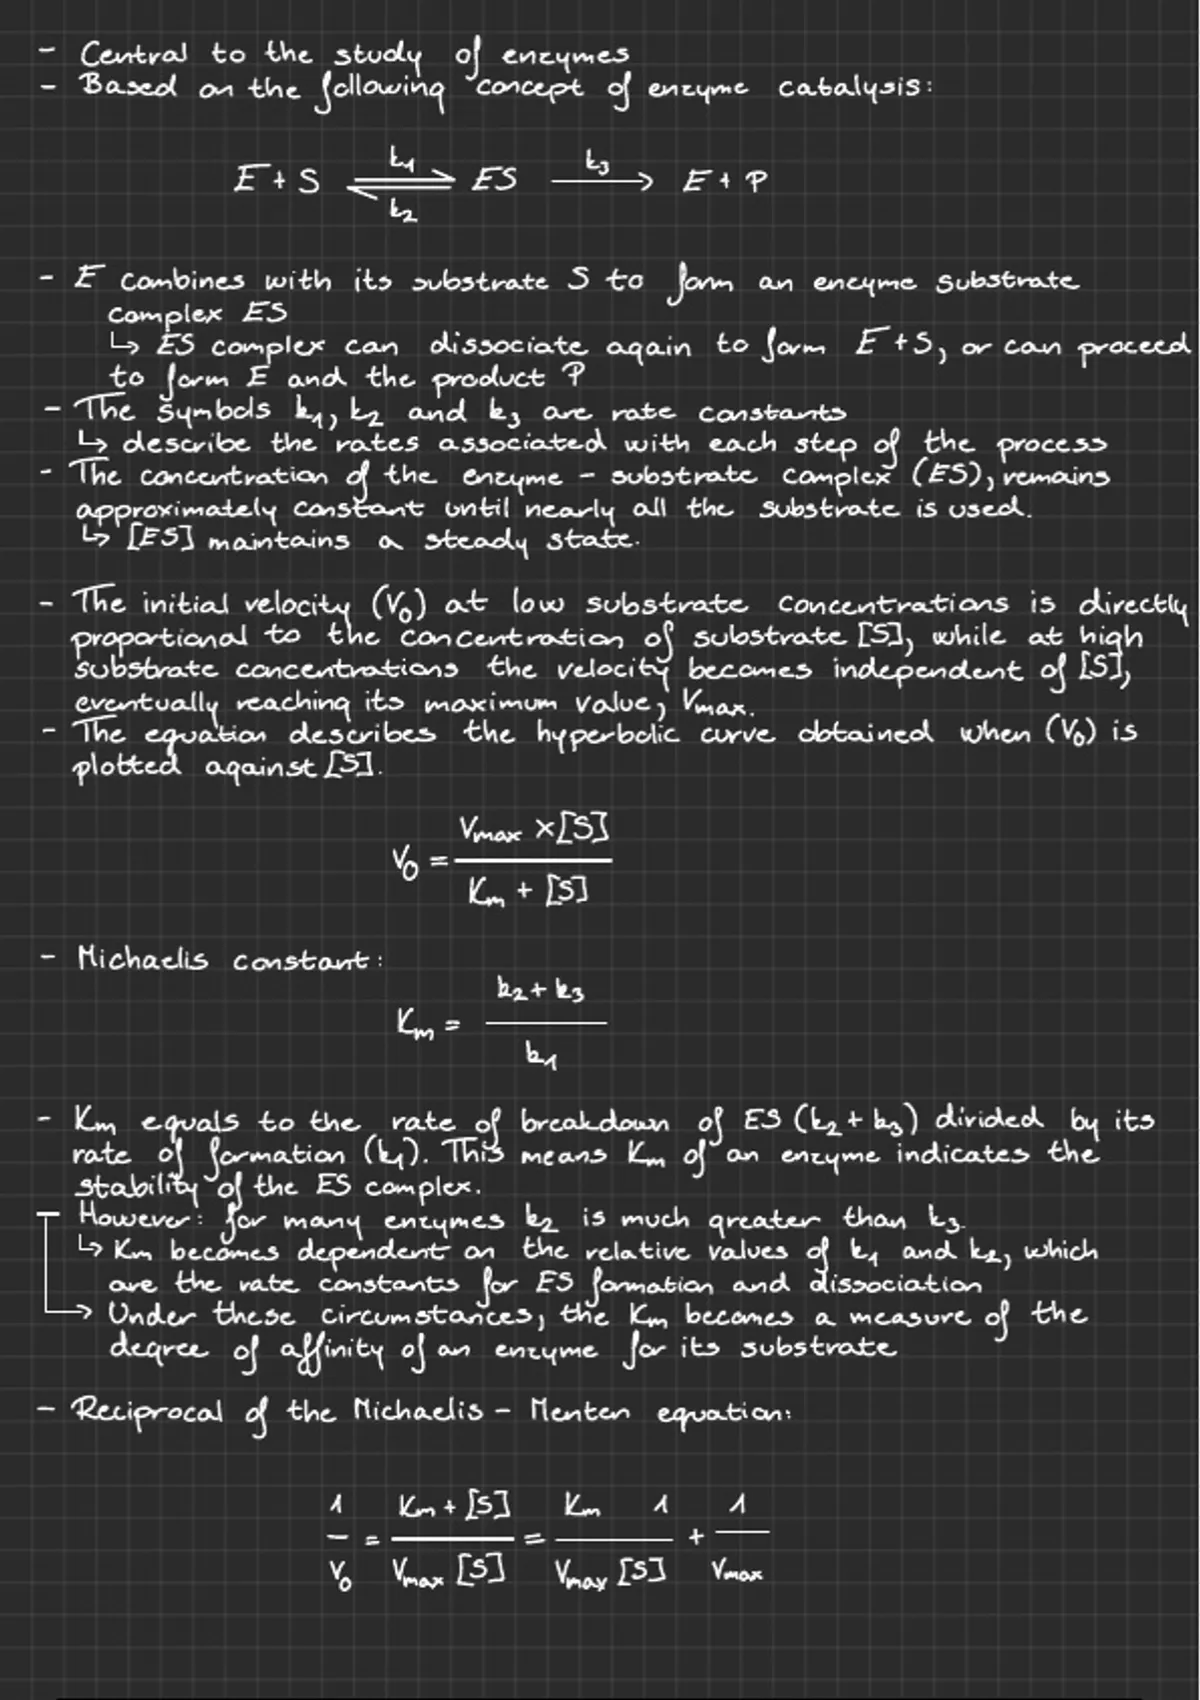 - Central to the study of enzymes
- Based on the following concept of enzyme catalysis:
k1 k3
E + S ⇌ ES → E + P
k2
- E combines with its substrate S to form an enzyme substrate
complex ES
↳ ES complex can dissociate again to form E + S, or can proceed
to form E and the product P
- The symbols k1, k2 and k3 are rate constants
↳ describe the rates associated with each step of the process
- The concentration of the enzyme - substrate complex (ES), remains
approximately constant until nearly all the substrate is used.
↳ [ES] maintains a steady state.
- The initial velocity (V0) at low substrate concentrations is directly
proportional to the concentration of substrate [S], while at high
substrate concentrations the velocity becomes independent of [S],
eventually reaching its maximum value, Vmax.
- The equation describes the hyperbolic curve obtained when (V0) is
plotted against [S].
Vmax × [S]
V0 =
Km + [S]
- Michaelis constant:
k2 + k3
Km =
k1
- Km equals to the rate of breakdown of ES (k2 + k3) divided by its
rate of formation (k1). This means Km of an enzyme indicates the
stability of the ES complex.
However: for many enzymes k2 is much greater than k3.
↳ Km becomes dependent on the relative values of k1 and k2, which
are the rate constants for ES formation and dissociation
→ Under these circumstances, the Km becomes a measure of the
degree of affinity of an enzyme for its substrate
- Reciprocal of the Michaelis - Menten equation:
1 Km + [S] Km 1 1
= = +
V0 Vmax [S] Vmax [S] Vmax